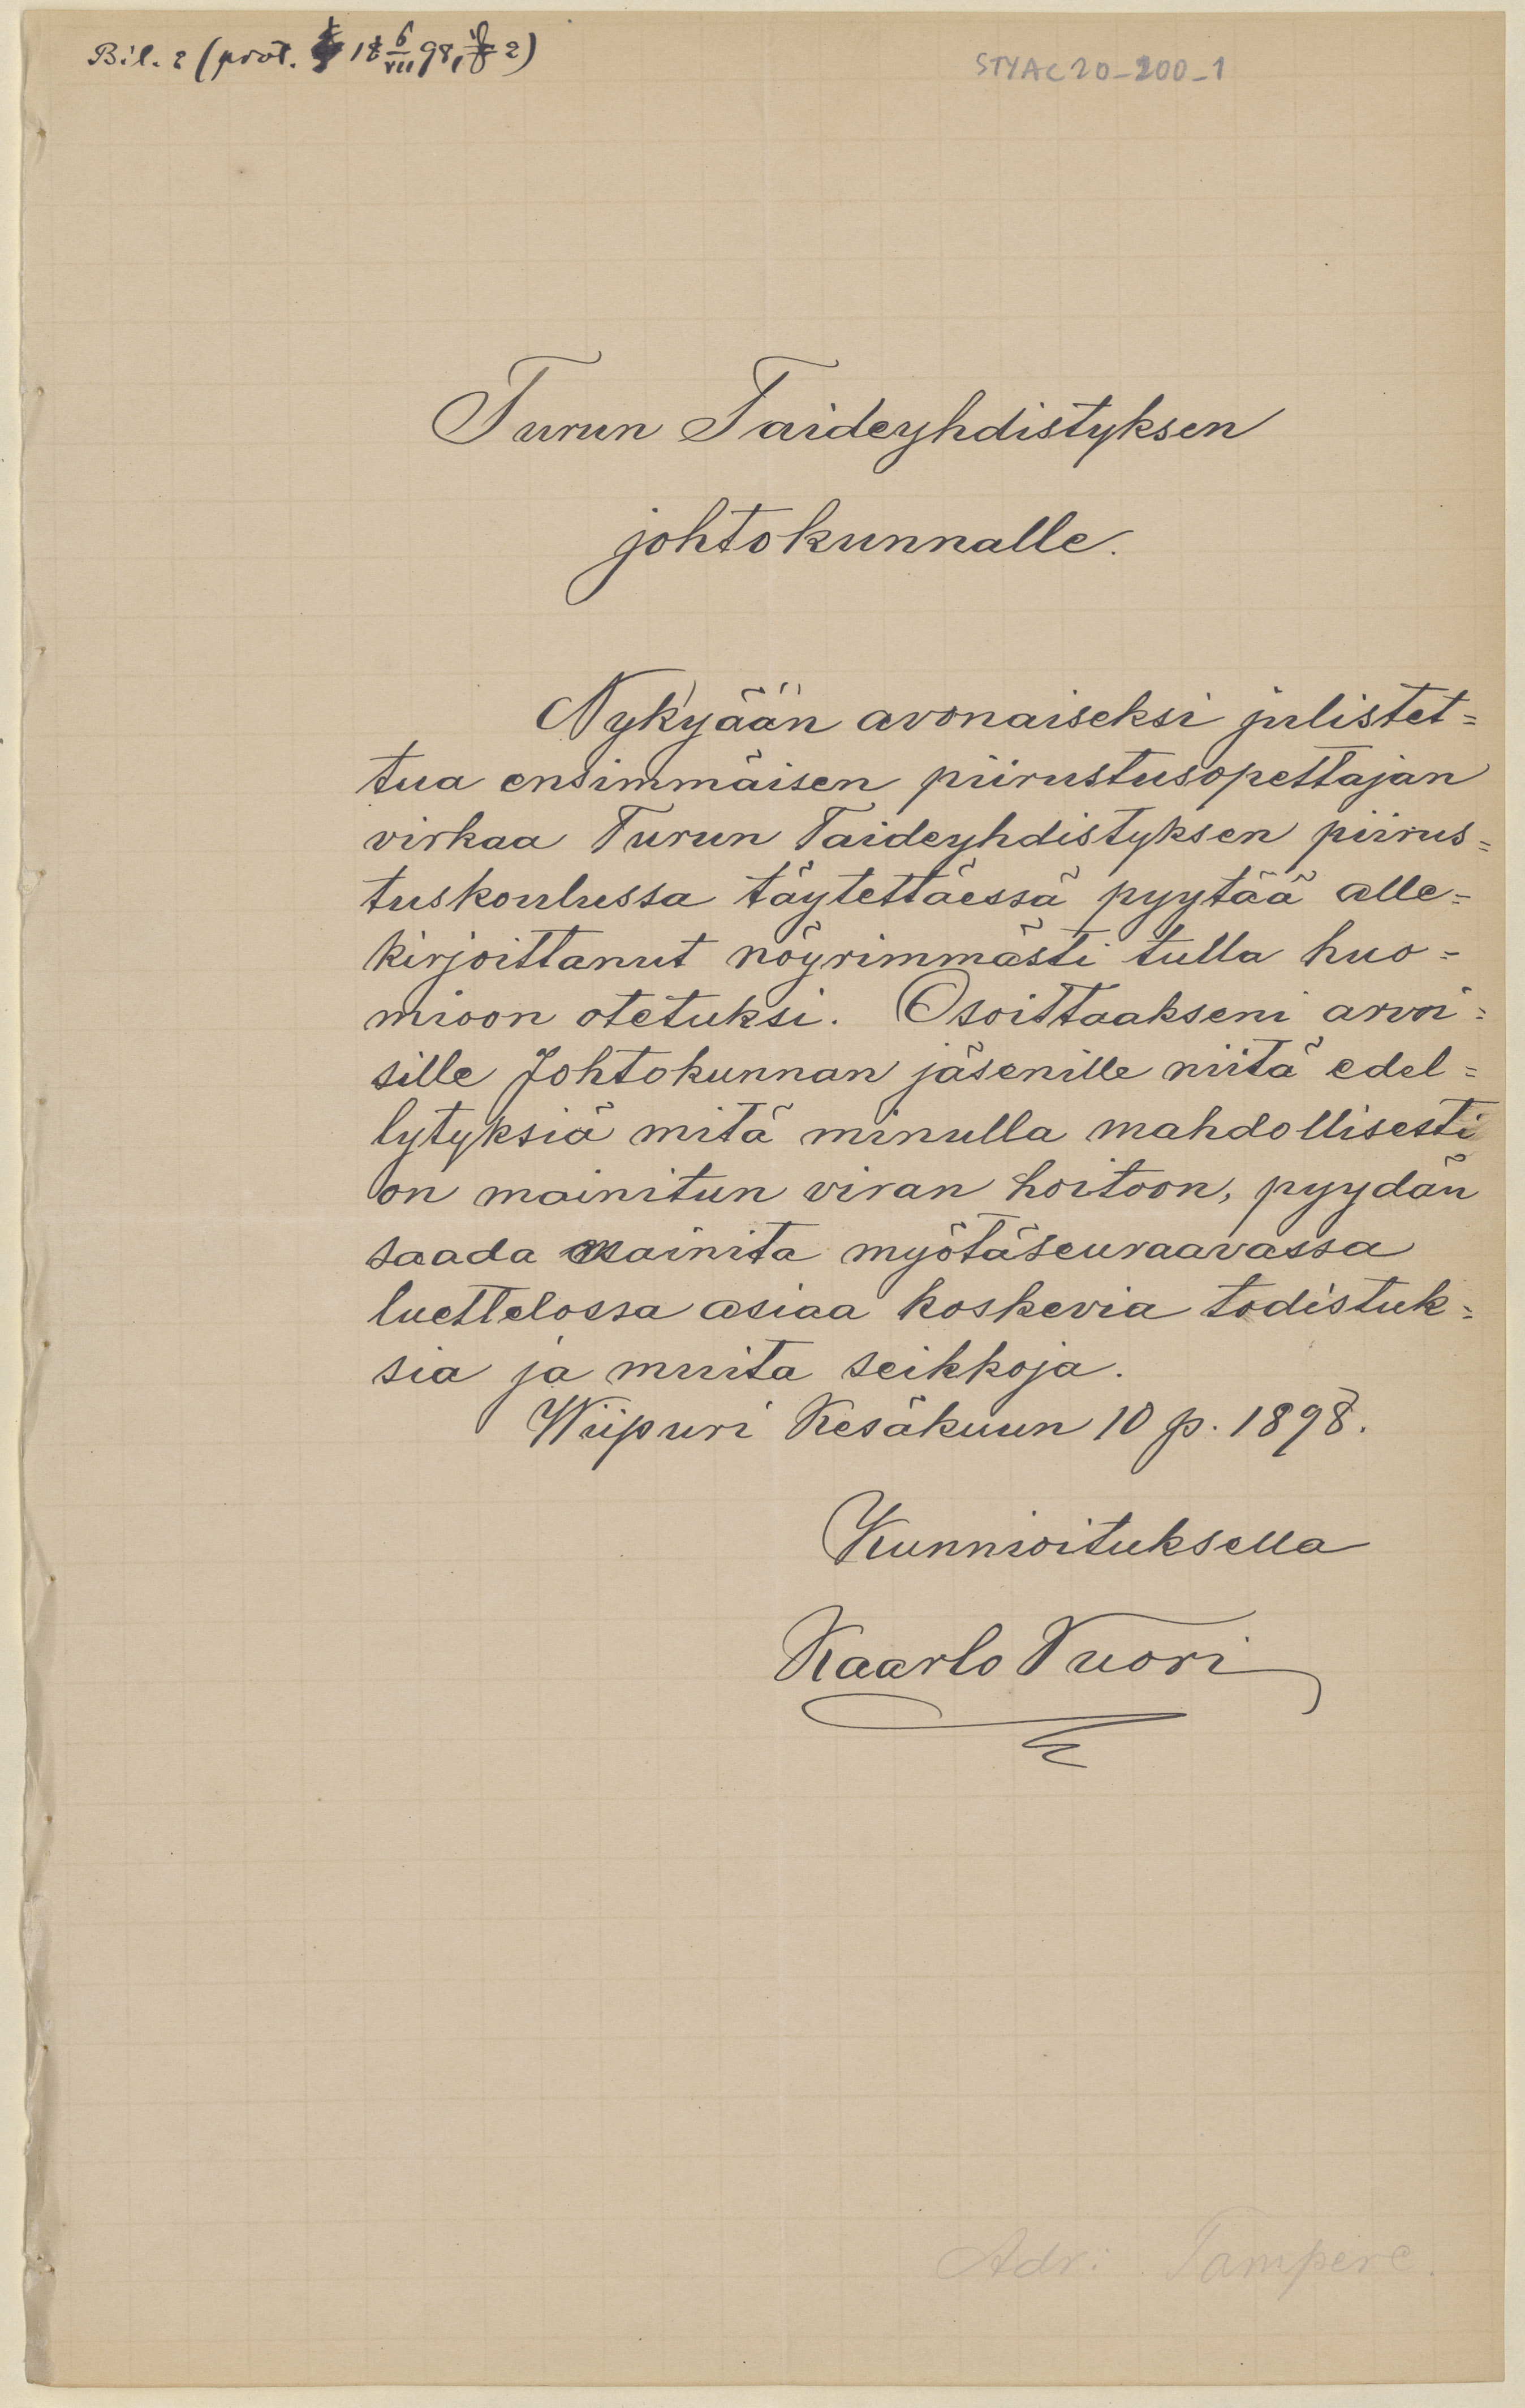 Bil. 2 (prot. 18 6/VII 98, § 2)
STYAC20_200_1
Turun Taideyhdistyksen
johtokunnalle.
Nykyään avonaiseksi julistet=
tua ensimmäisen piirustusopettajan
virkaa Turun Taideyhdistyksen piirus=
tuskoulussa täytettäessä pyytää alle=
kirjoittanut nöyrimmästi tulla huo=
mioon otetuksi. Osoittaakseni arvoi=
sille Johtokunnan jäsenille niitä edel=
lytyksiä mitä minulla mahdollisesti
on mainitun viran hoitoon, pyydän
saada mainita myötäseuraavassa
luettelossa asiaa koskevia todistuk=
sia ja muita seikkoja.
Wiipuri Kesäkuun 10 p. 1898.
Kunnioituksella
Kaarlo Vuori
Adr: Tampere.